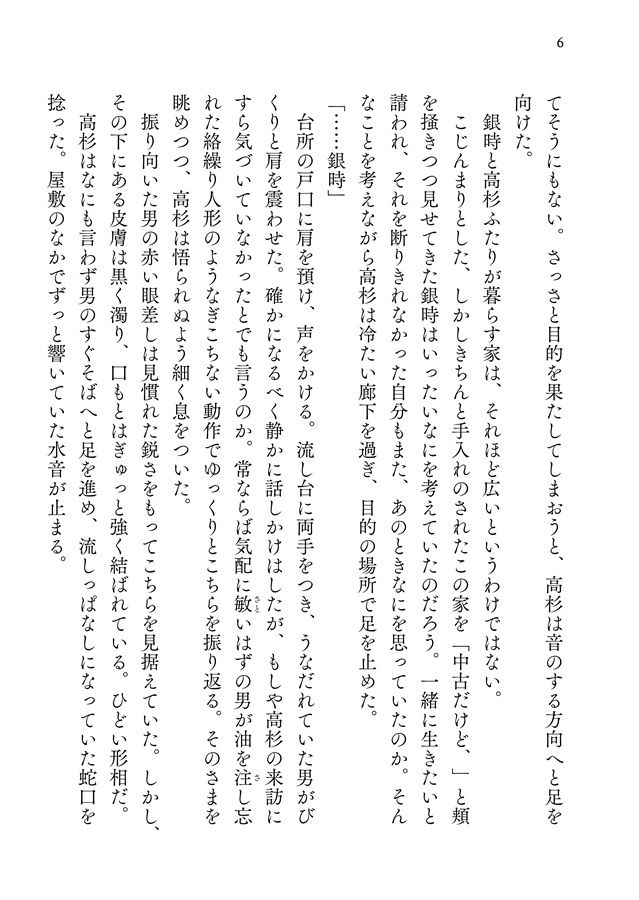 6
てそうにもない。さっさと目的を果たしてしまおうと、高杉は音のする方向へと足を
向けた。
銀時と高杉ふたりが暮らす家は、それほど広いというわけではない。
こじんまりとした、しかしきちんと手入れのされたこの家を「中古だけど、」と頬
を掻きつつ見せてきた銀時はいったいなにを考えていたのだろう。一緒に生きたいと
請われ、それを断りきれなかった自分もまた、あのときなにを思っていたのか。そん
なことを考えながら高杉は冷たい廊下を過ぎ、目的の場所で足を止めた。
「……銀時」
台所の戸口に肩を預け、声をかける。流し台に両手をつき、うなだれていた男がび
くりと肩を震わせた。確かになるべく静かに話しかけはしたが、もしや高杉の来訪に
すら気づいていなかったとでも言うのか。常ならば気配に敏さといはずの男が油を注さし忘
れた絡繰り人形のようなぎこちない動作でゆっくりとこちらを振り返る。そのさまを
眺めつつ、高杉は悟られぬよう細く息をついた。
振り向いた男の赤い眼差しは見慣れた鋭さをもってこちらを見据えていた。しかし、
その下にある皮膚は黒く濁り、口もとはぎゅっと強く結ばれている。ひどい形相だ。
高杉はなにも言わず男のすぐそばへと足を進め、流しっぱなしになっていた蛇口を
捻った。屋敷のなかでずっと響いていた水音が止まる。